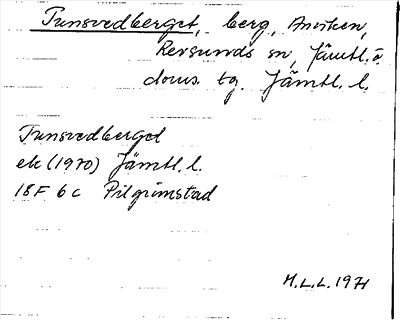 Tunsvedberget, berg, Anviken,
Revsunds sn, Jämtl. ö.
doms. tg. Jämtl. l.
Tunsvedberget
ek (1970) Jämtl. l.
18F 6c Pilgrimstad
M.L.L. 1971